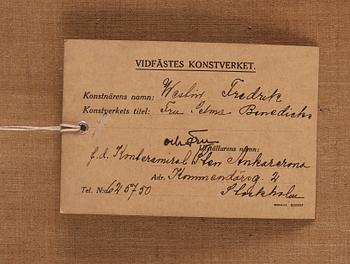 VIDFÄSTES KONSTVERKET.
Konstnärens namn: Weslöv Fredrik
Konstverkets titel: Fru Selma Benedicks
och Fru
Utställarens namn:
f.d. Konteramiral Sten Ankarcrona
Adr. Kommendörsg. 2
Tel. N:o 625750 Stockholm